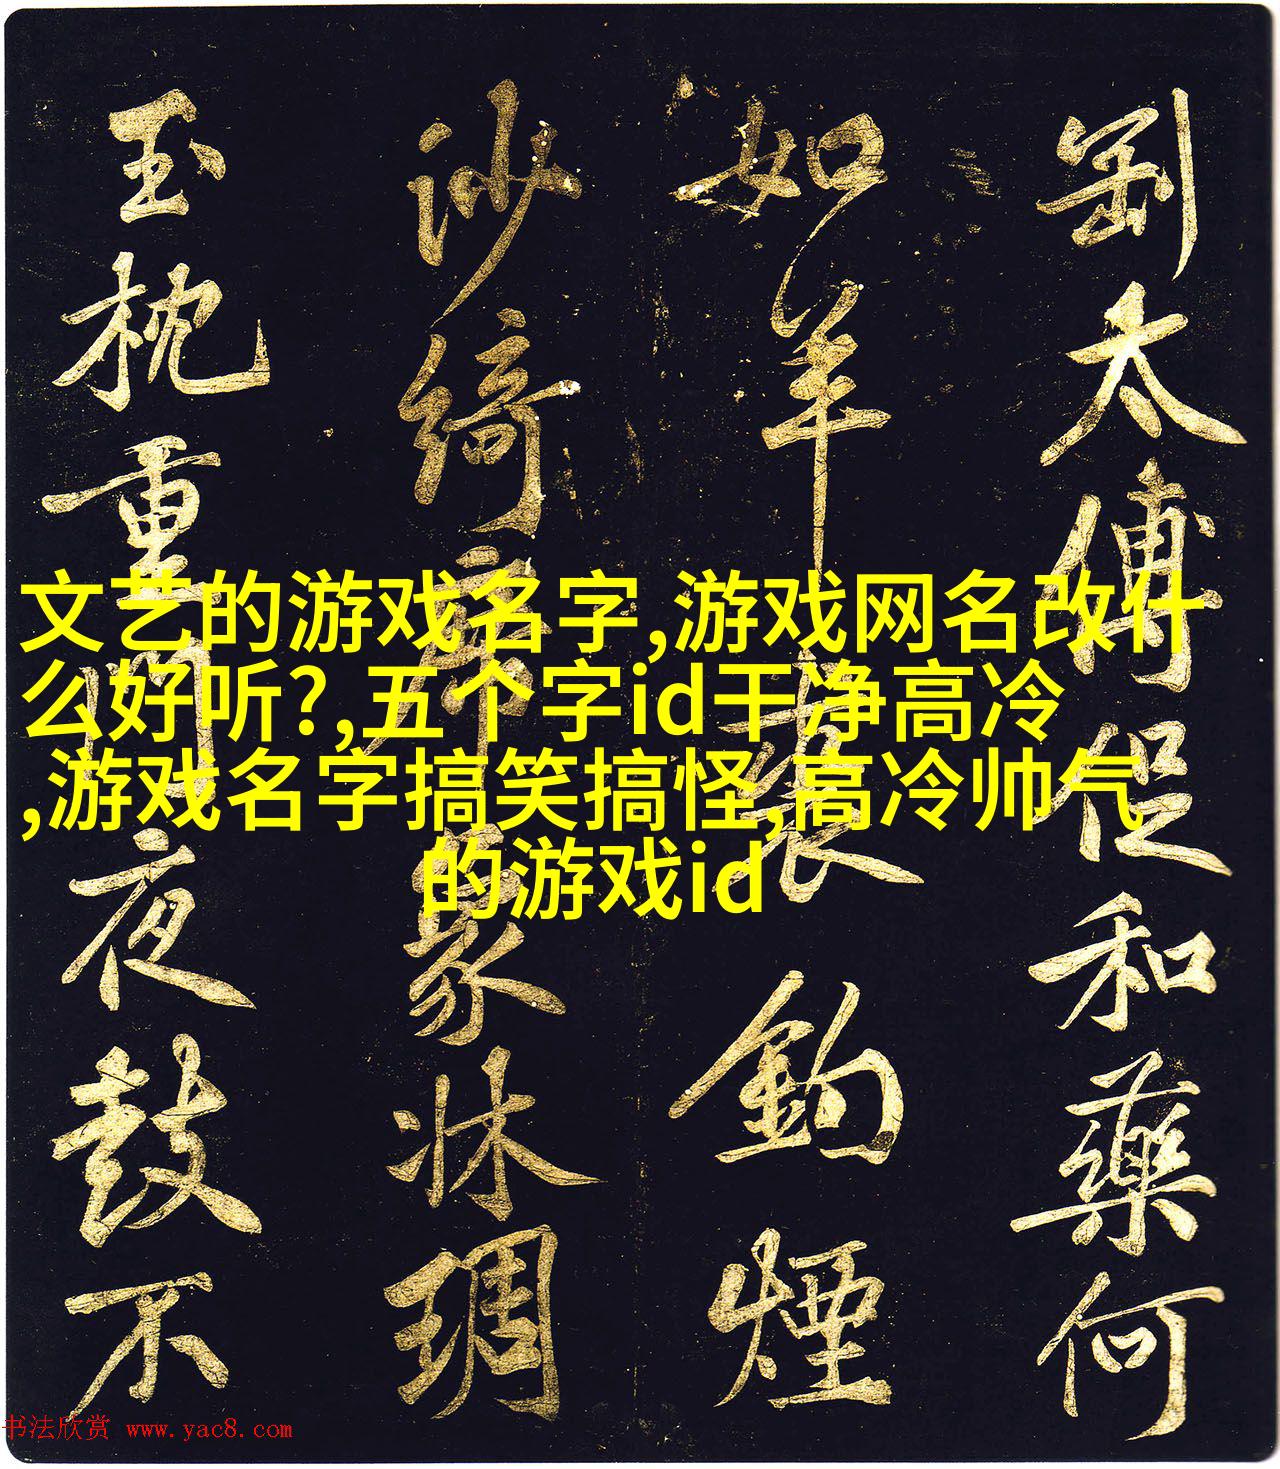 文艺的游戏名字,游戏网名改什
么好听?,五个字id干净高冷
,游戏名字搞笑搞怪,高冷帅气
的游戏id
剛太傅促和藥何
如羊裘釣煙
沙綺席象牀琱
玉枕重門夜鼓不
书法欣赏 www.yac8.com